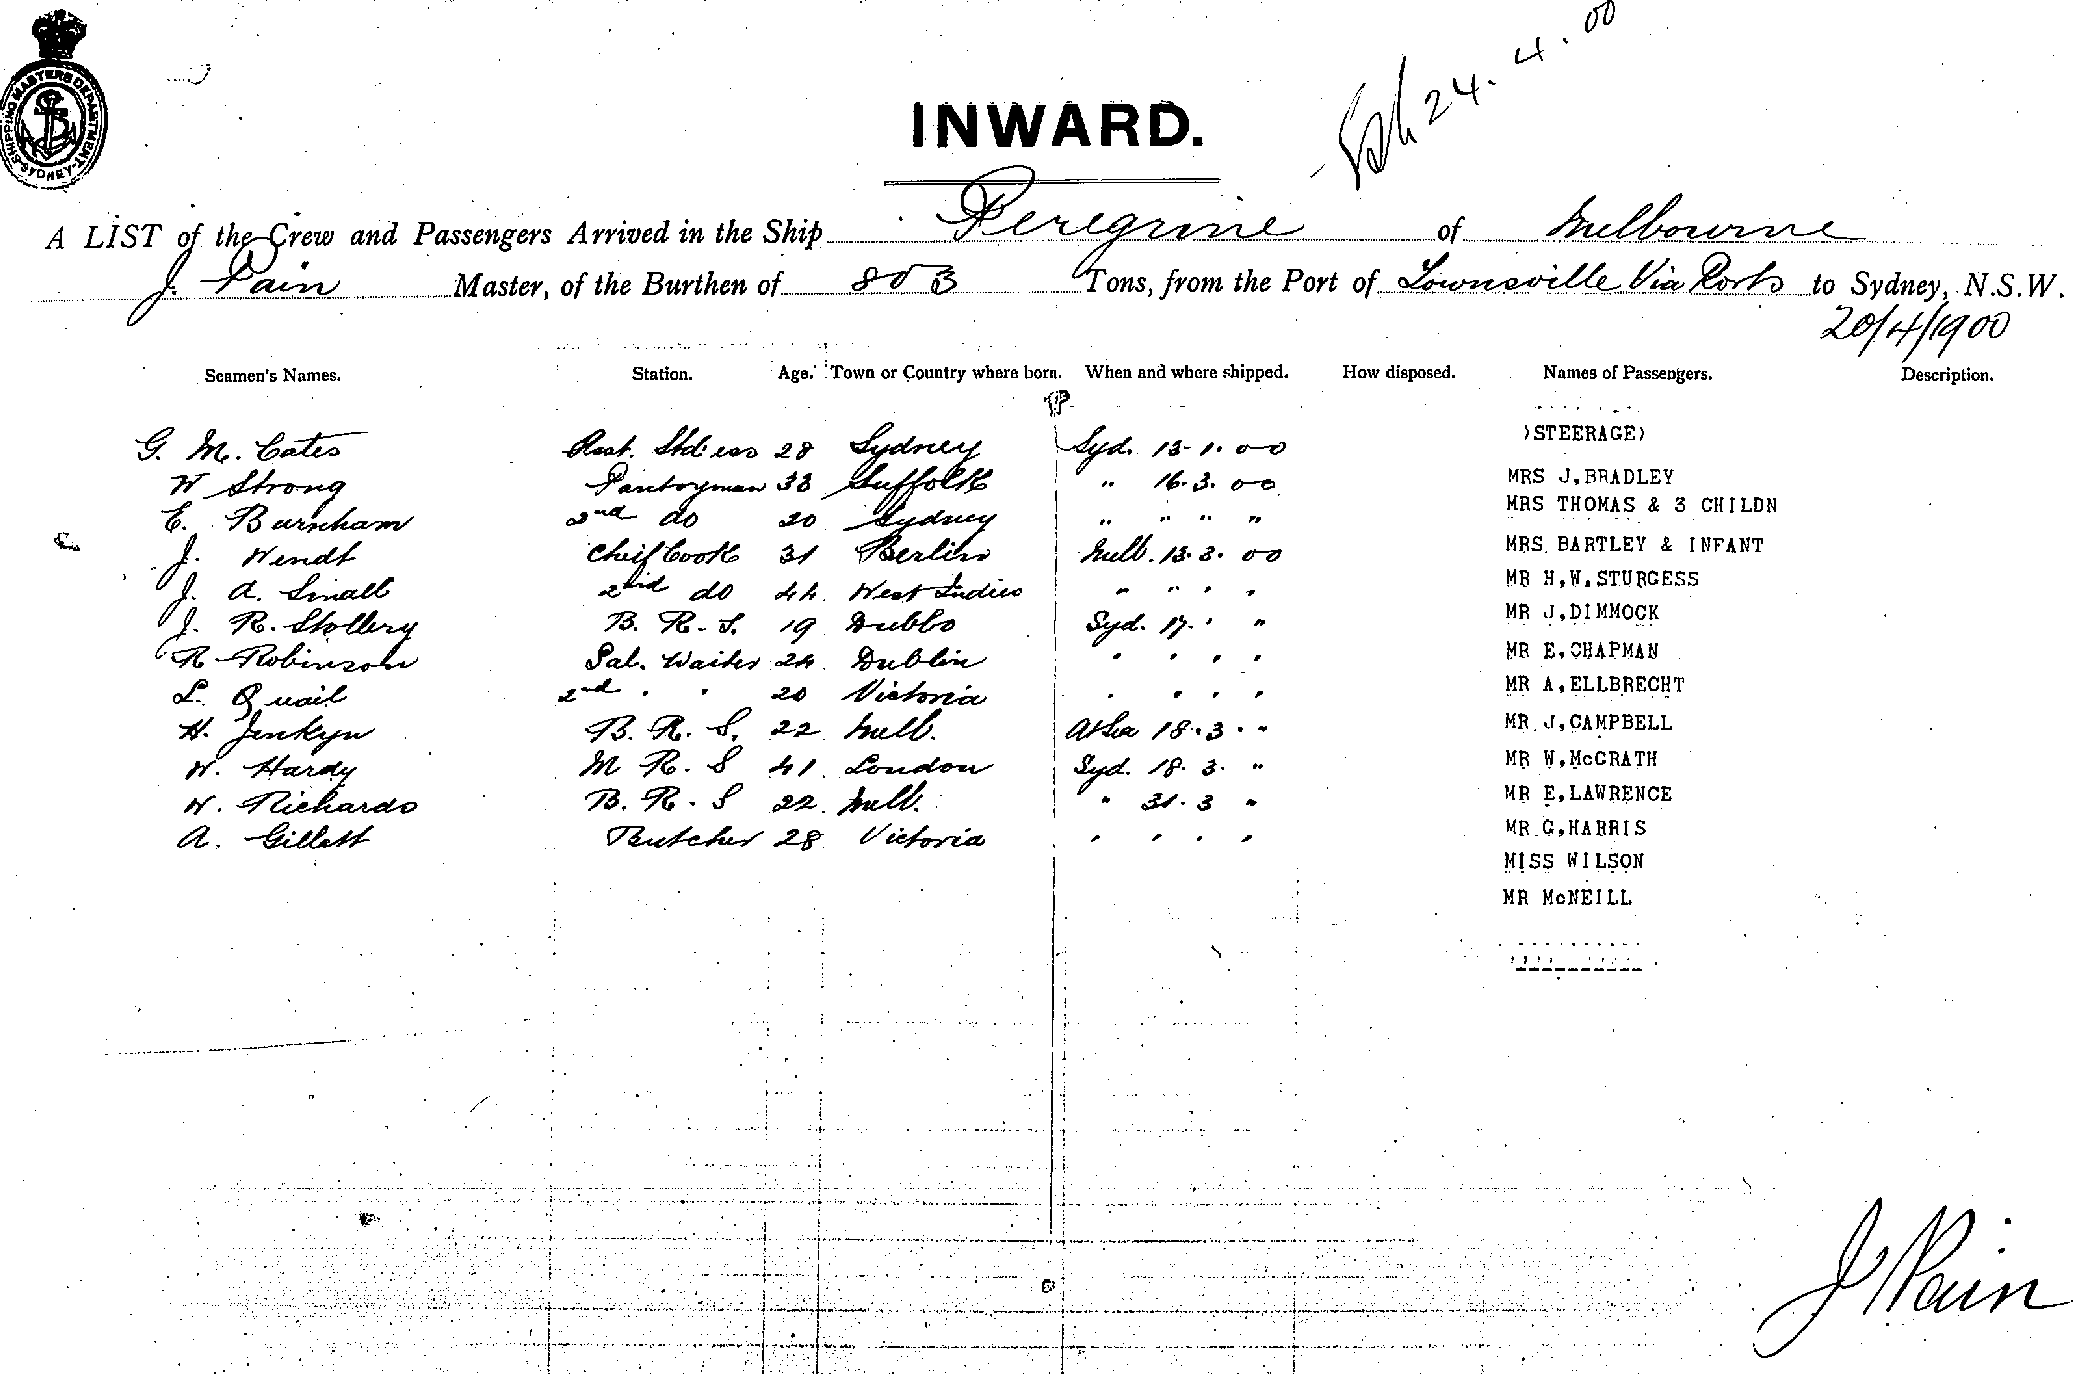 SHIPPING MASTERS DEPARTMENT SYDNEY
24.4.00
INWARD.
A LIST of the Crew and Passengers Arrived in the Ship Peregrine of Melbourne
J. Pain Master, of the Burthen of 803 Tons, from the Port of Townsville Via Ports to Sydney, N.S.W.
20/4/1900
Seamen's Names. Station. Age. Town or Country where born. When and where shipped. How disposed. Names of Passengers. Description.
(STEERAGE)
G. M. Cates 28 Sydney Syd. 13.1.00
MRS J.BRADLEY
W Strong Pantryman 33 Suffolk " 16.3.00
MRS THOMAS & 3 CHILDN
E. Burnham 2nd do 20 Sydney " " " "
MRS BARTLEY & INFANT
J. Wendt Cheif Cook 31 Berlin Melb. 13.3.00
MR H.W.STURGESS
J. A. Small 2nd do 44 West Indies " " " "
MR J.DIMMOCK
J. R. Stollery B. R. S. 19 Dubbo Syd. 17. " "
MR E.CHAPMAN
R Robinson Sal. Waiter 24 Dublin " " " "
MR A.ELLBRECHT
L. Quail 2nd " " 20 Victoria " " " "
MR J.CAMPBELL
H. Jenkyn B. R. S. 22 Melb. At Sea 18.3. "
MR W.McGRATH
W. Hardy M R. S 41 London Syd. 18.3. "
MR E.LAWRENCE
W. Richards B. R. S 22 Melb. " 31.3 "
MR G.HARRIS
A. Gillett Butcher 28 Victoria " " " "
MISS WILSON
MR McNEILL
J Pain